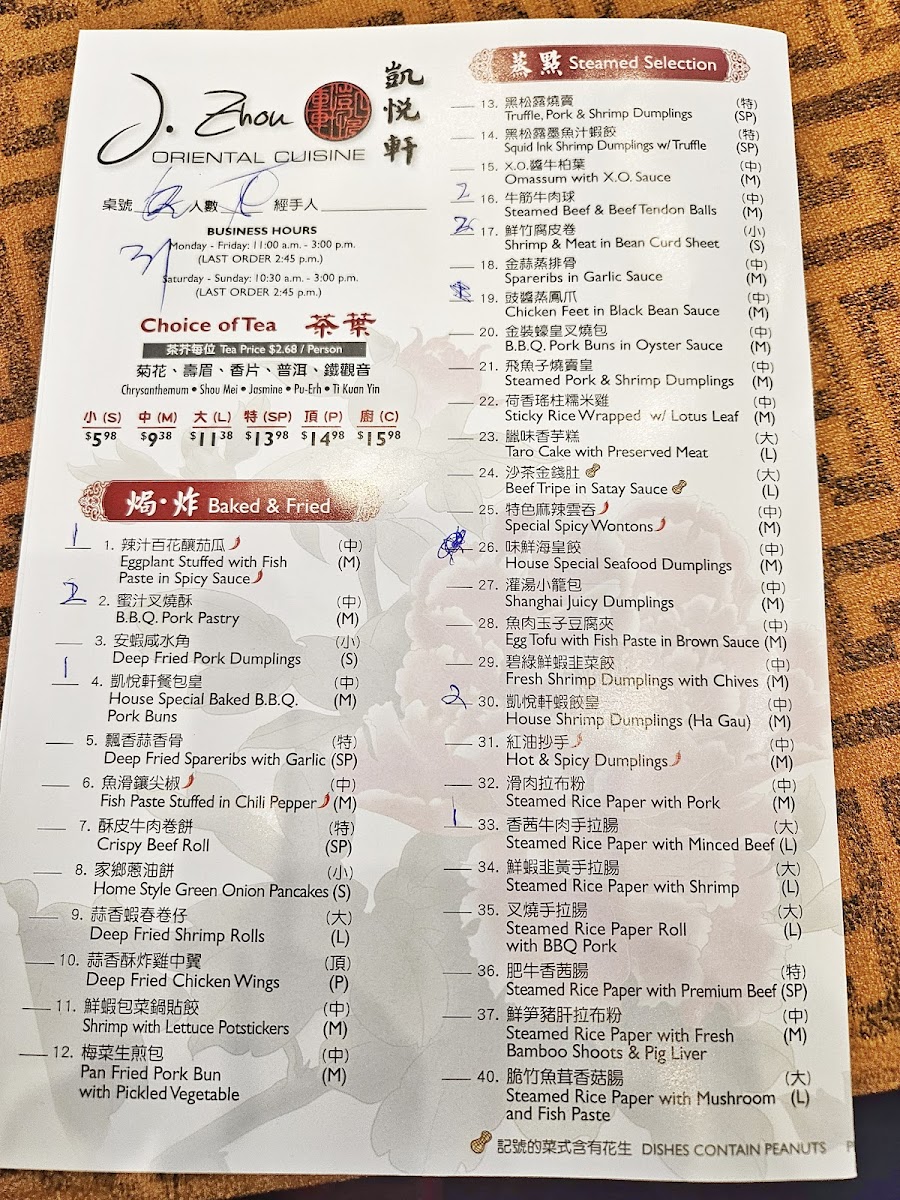 J. Zhou
凱悅軒
ORIENTAL CUISINE
桌號 人數 經手人
BUSINESS HOURS
Monday - Friday: 11:00 a.m. - 3:00 p.m.
(LAST ORDER 2:45 p.m.)
Saturday - Sunday: 10:30 a.m. - 3:00 p.m.
(LAST ORDER 2:45 p.m.)
Choice of Tea 茶葉
茶芥每位 Tea Price $2.68 / Person
菊花、壽眉、香片、普洱、鐵觀音
Chrysanthemum • Shou Mei • Jasmine • Pu-Erh • Ti Kuan Yin
小 (S) 中 (M) 大 (L) 特 (SP) 頂 (P) 廚 (C)
$5.98 $9.38 $11.38 $13.98 $14.98 $15.98
焗·炸 Baked & Fried
1 1. 辣汁百花釀茄瓜 (中)
Eggplant Stuffed with Fish (M)
Paste in Spicy Sauce
2 2. 蜜汁叉燒酥 (中)
B.B.Q. Pork Pastry (M)
3. 安蝦咸水角 (小)
Deep Fried Pork Dumplings (S)
1 4. 凱悅軒餐包皇 (中)
House Special Baked B.B.Q. (M)
Pork Buns
5. 飄香蒜香骨 (特)
Deep Fried Spareribs with Garlic (SP)
6. 魚滑鑲尖椒 (中)
Fish Paste Stuffed in Chili Pepper (M)
7. 酥皮牛肉卷餅 (特)
Crispy Beef Roll (SP)
8. 家鄉蔥油餅 (小)
Home Style Green Onion Pancakes (S)
9. 蒜香蝦春卷仔 (大)
Deep Fried Shrimp Rolls (L)
10. 蒜香酥炸雞中翼 (頂)
Deep Fried Chicken Wings (P)
11. 鮮蝦包菜鍋貼餃 (中)
Shrimp with Lettuce Potstickers (M)
12. 梅菜生煎包 (中)
Pan Fried Pork Bun (M)
with Pickled Vegetable
蒸點 Steamed Selection
13. 黑松露燒賣 (特)
Truffle, Pork & Shrimp Dumplings (SP)
14. 黑松露墨魚汁蝦餃 (特)
Squid Ink Shrimp Dumplings w/ Truffle (SP)
15. X.O.醬牛柏葉 (中)
Omassum with X.O. Sauce (M)
2 16. 牛筋牛肉球 (中)
Steamed Beef & Beef Tendon Balls (M)
2 17. 鮮竹腐皮卷 (小)
Shrimp & Meat in Bean Curd Sheet (S)
18. 金蒜蒸排骨 (中)
Spareribs in Garlic Sauce (M)
19. 豉醬蒸鳳爪 (中)
Chicken Feet in Black Bean Sauce (M)
20. 金裝蠔皇叉燒包 (中)
B.B.Q. Pork Buns in Oyster Sauce (M)
21. 飛魚子燒賣皇 (中)
Steamed Pork & Shrimp Dumplings (M)
22. 荷香瑤柱糯米雞 (中)
Sticky Rice Wrapped w/ Lotus Leaf (M)
23. 臘味香芋糕 (大)
Taro Cake with Preserved Meat (L)
24. 沙茶金錢肚 (大)
Beef Tripe in Satay Sauce (L)
25. 特色麻辣雲吞 (中)
Special Spicy Wontons (M)
26. 味鮮海皇餃 (中)
House Special Seafood Dumplings (M)
27. 灌湯小籠包 (中)
Shanghai Juicy Dumplings (M)
28. 魚肉玉子豆腐夾 (中)
Egg Tofu with Fish Paste in Brown Sauce (M)
29. 碧綠鮮蝦韭菜餃 (中)
Fresh Shrimp Dumplings with Chives (M)
2 30. 凱悅軒蝦餃皇 (中)
House Shrimp Dumplings (Ha Gau) (M)
31. 紅油抄手 (中)
Hot & Spicy Dumplings (M)
32. 滑肉拉布粉 (中)
Steamed Rice Paper with Pork (M)
1 33. 香茜牛肉手拉腸 (大)
Steamed Rice Paper with Minced Beef (L)
34. 鮮蝦韭黃手拉腸 (大)
Steamed Rice Paper with Shrimp (L)
35. 叉燒手拉腸 (大)
Steamed Rice Paper Roll (L)
with BBQ Pork
36. 肥牛香茜腸 (特)
Steamed Rice Paper with Premium Beef (SP)
37. 鮮笋豬肝拉布粉 (中)
Steamed Rice Paper with Fresh (M)
Bamboo Shoots & Pig Liver
40. 脆竹魚茸香菇腸 (大)
Steamed Rice Paper with Mushroom (L)
and Fish Paste
記號的菜式含有花生 DISHES CONTAIN PEANUTS